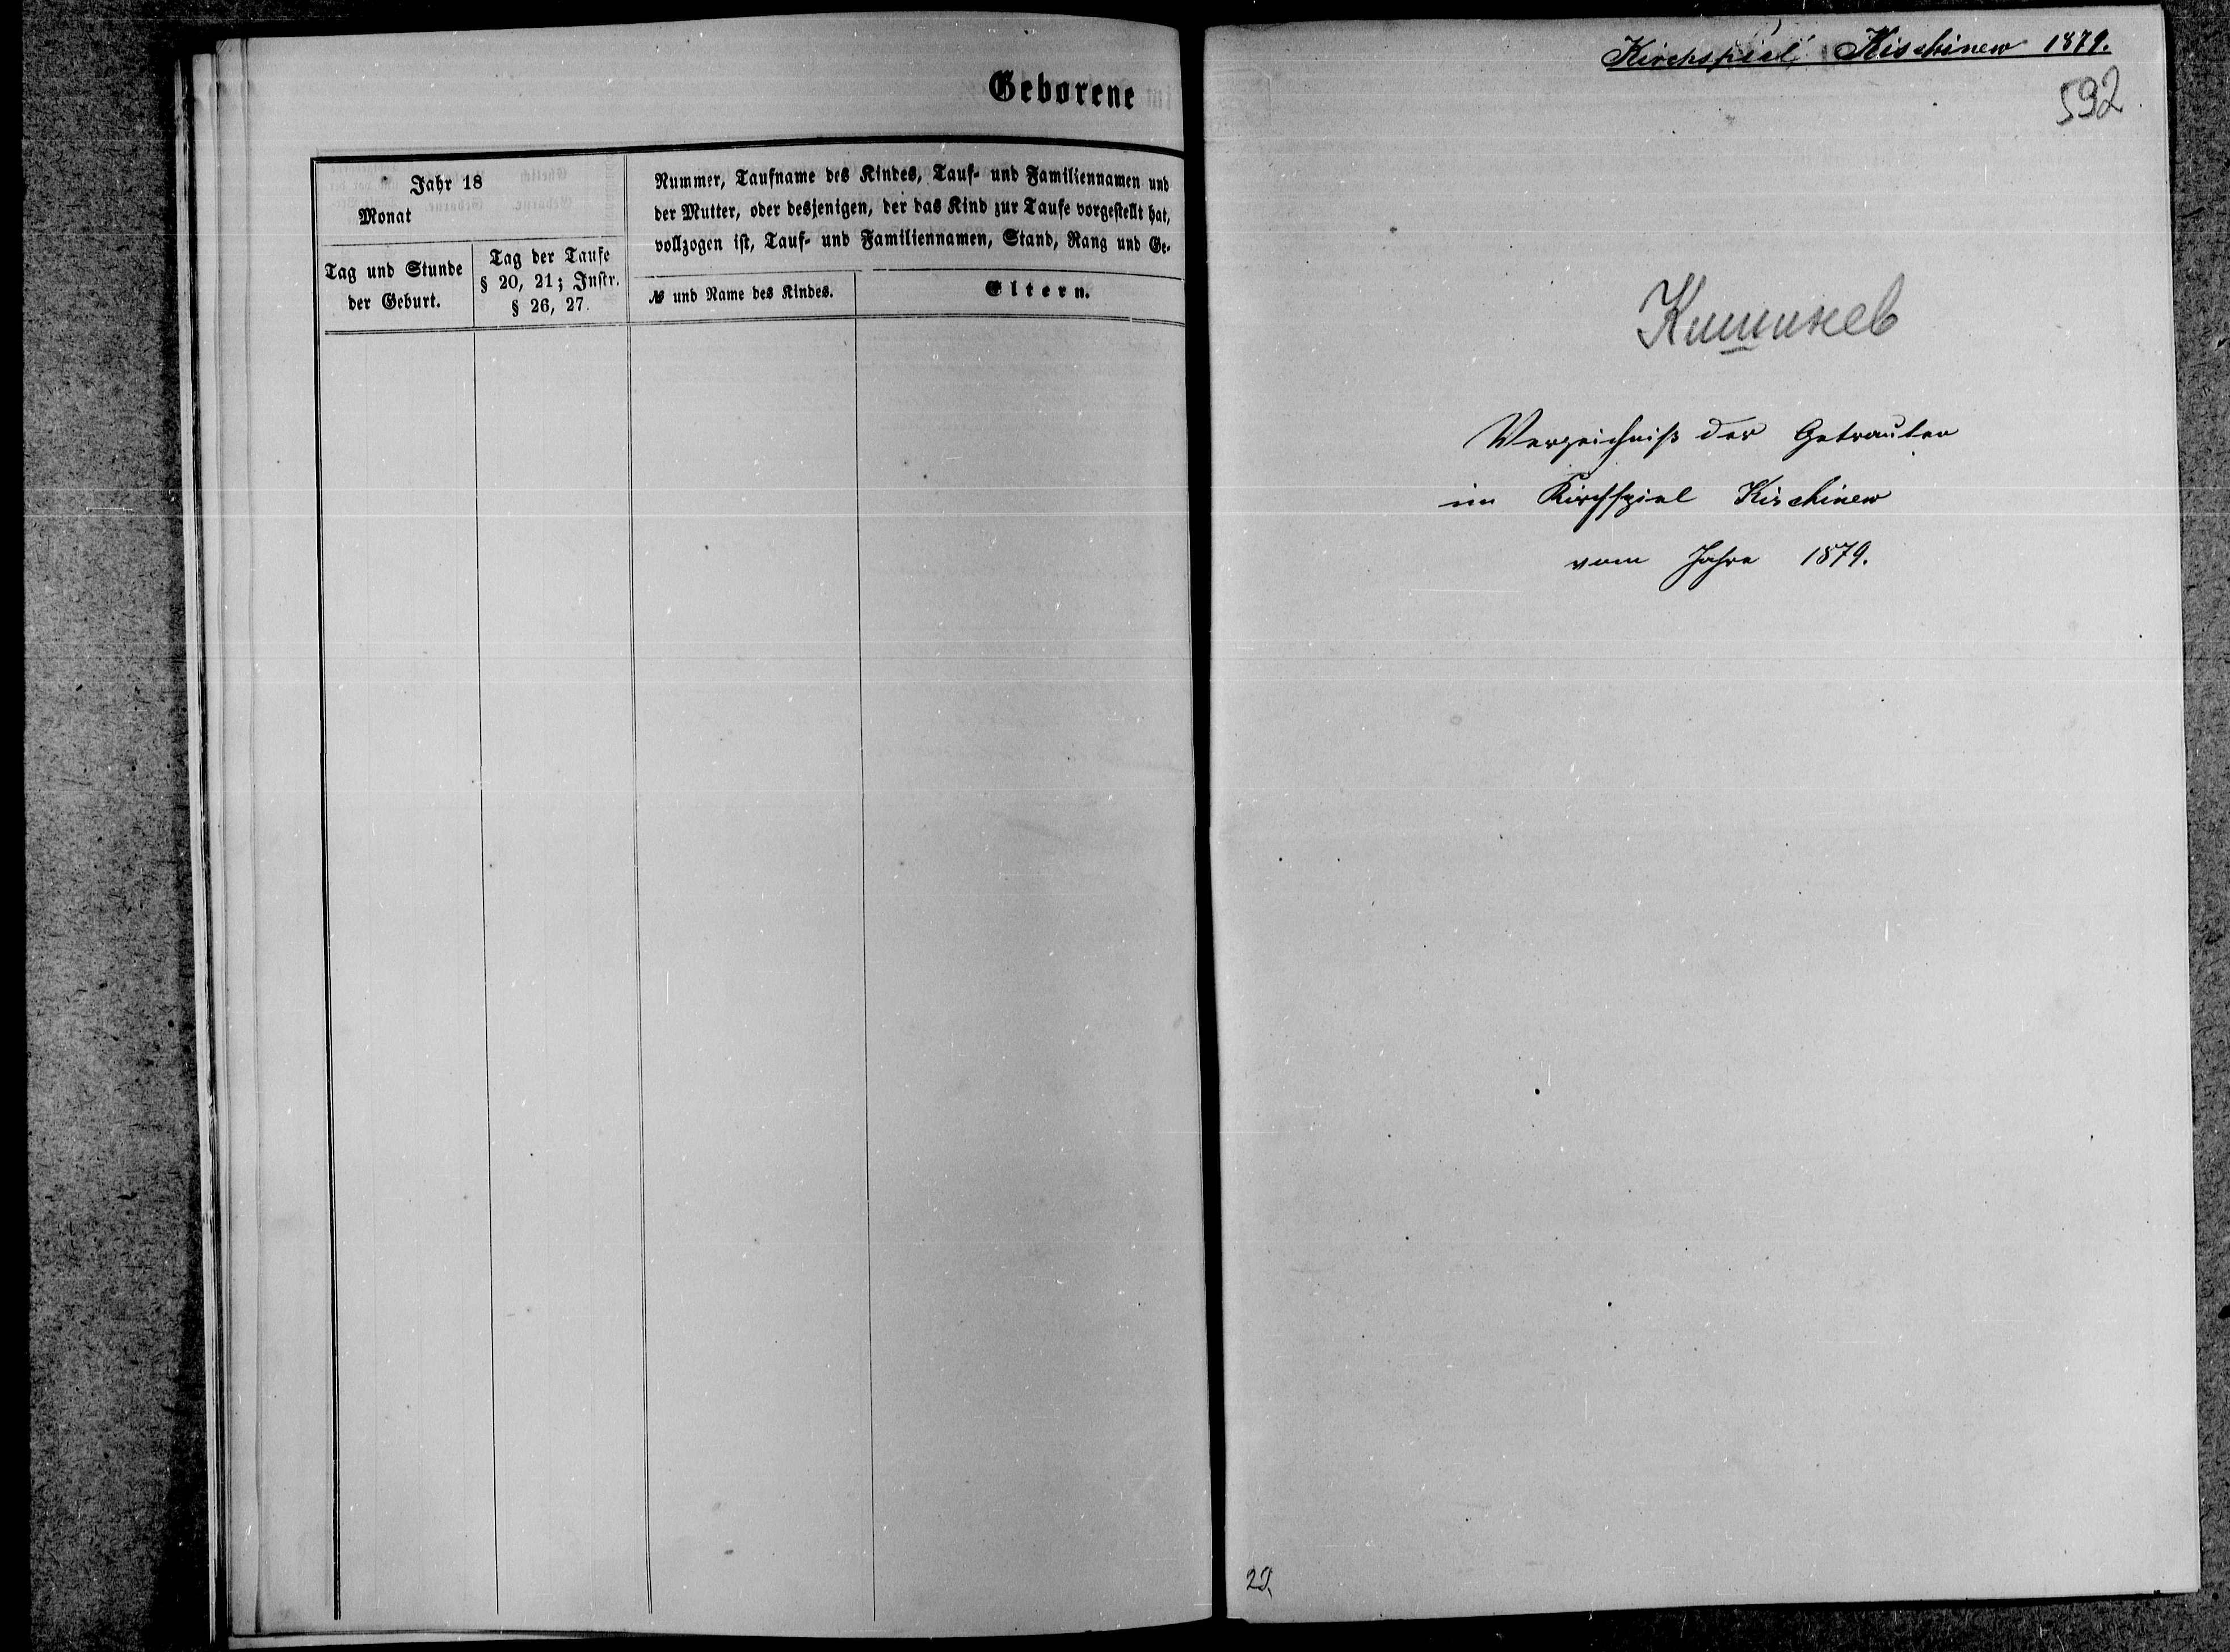 Geborene
Jahr 18
Monat
Tag und Stunde
der Geburt.
Tag der Taufe
§ 20, 21; Instr.
§ 26, 27.
Nummer, Taufname des Kindes, Tauf- und Familiennamen und
der Mutter, oder desjenigen, der das Kind zur Taufe vorgestellt hat,
vollzogen ist, Tauf- und Familiennamen, Stand, Rang und Ge-
№ und Name des Kindes.
Eltern.
Kirchspiel Kischinew 1879.
592
Кишинев
Verzeichniß der Getrauten
im Kirchspiel Kischinew
vom Jahre 1879.